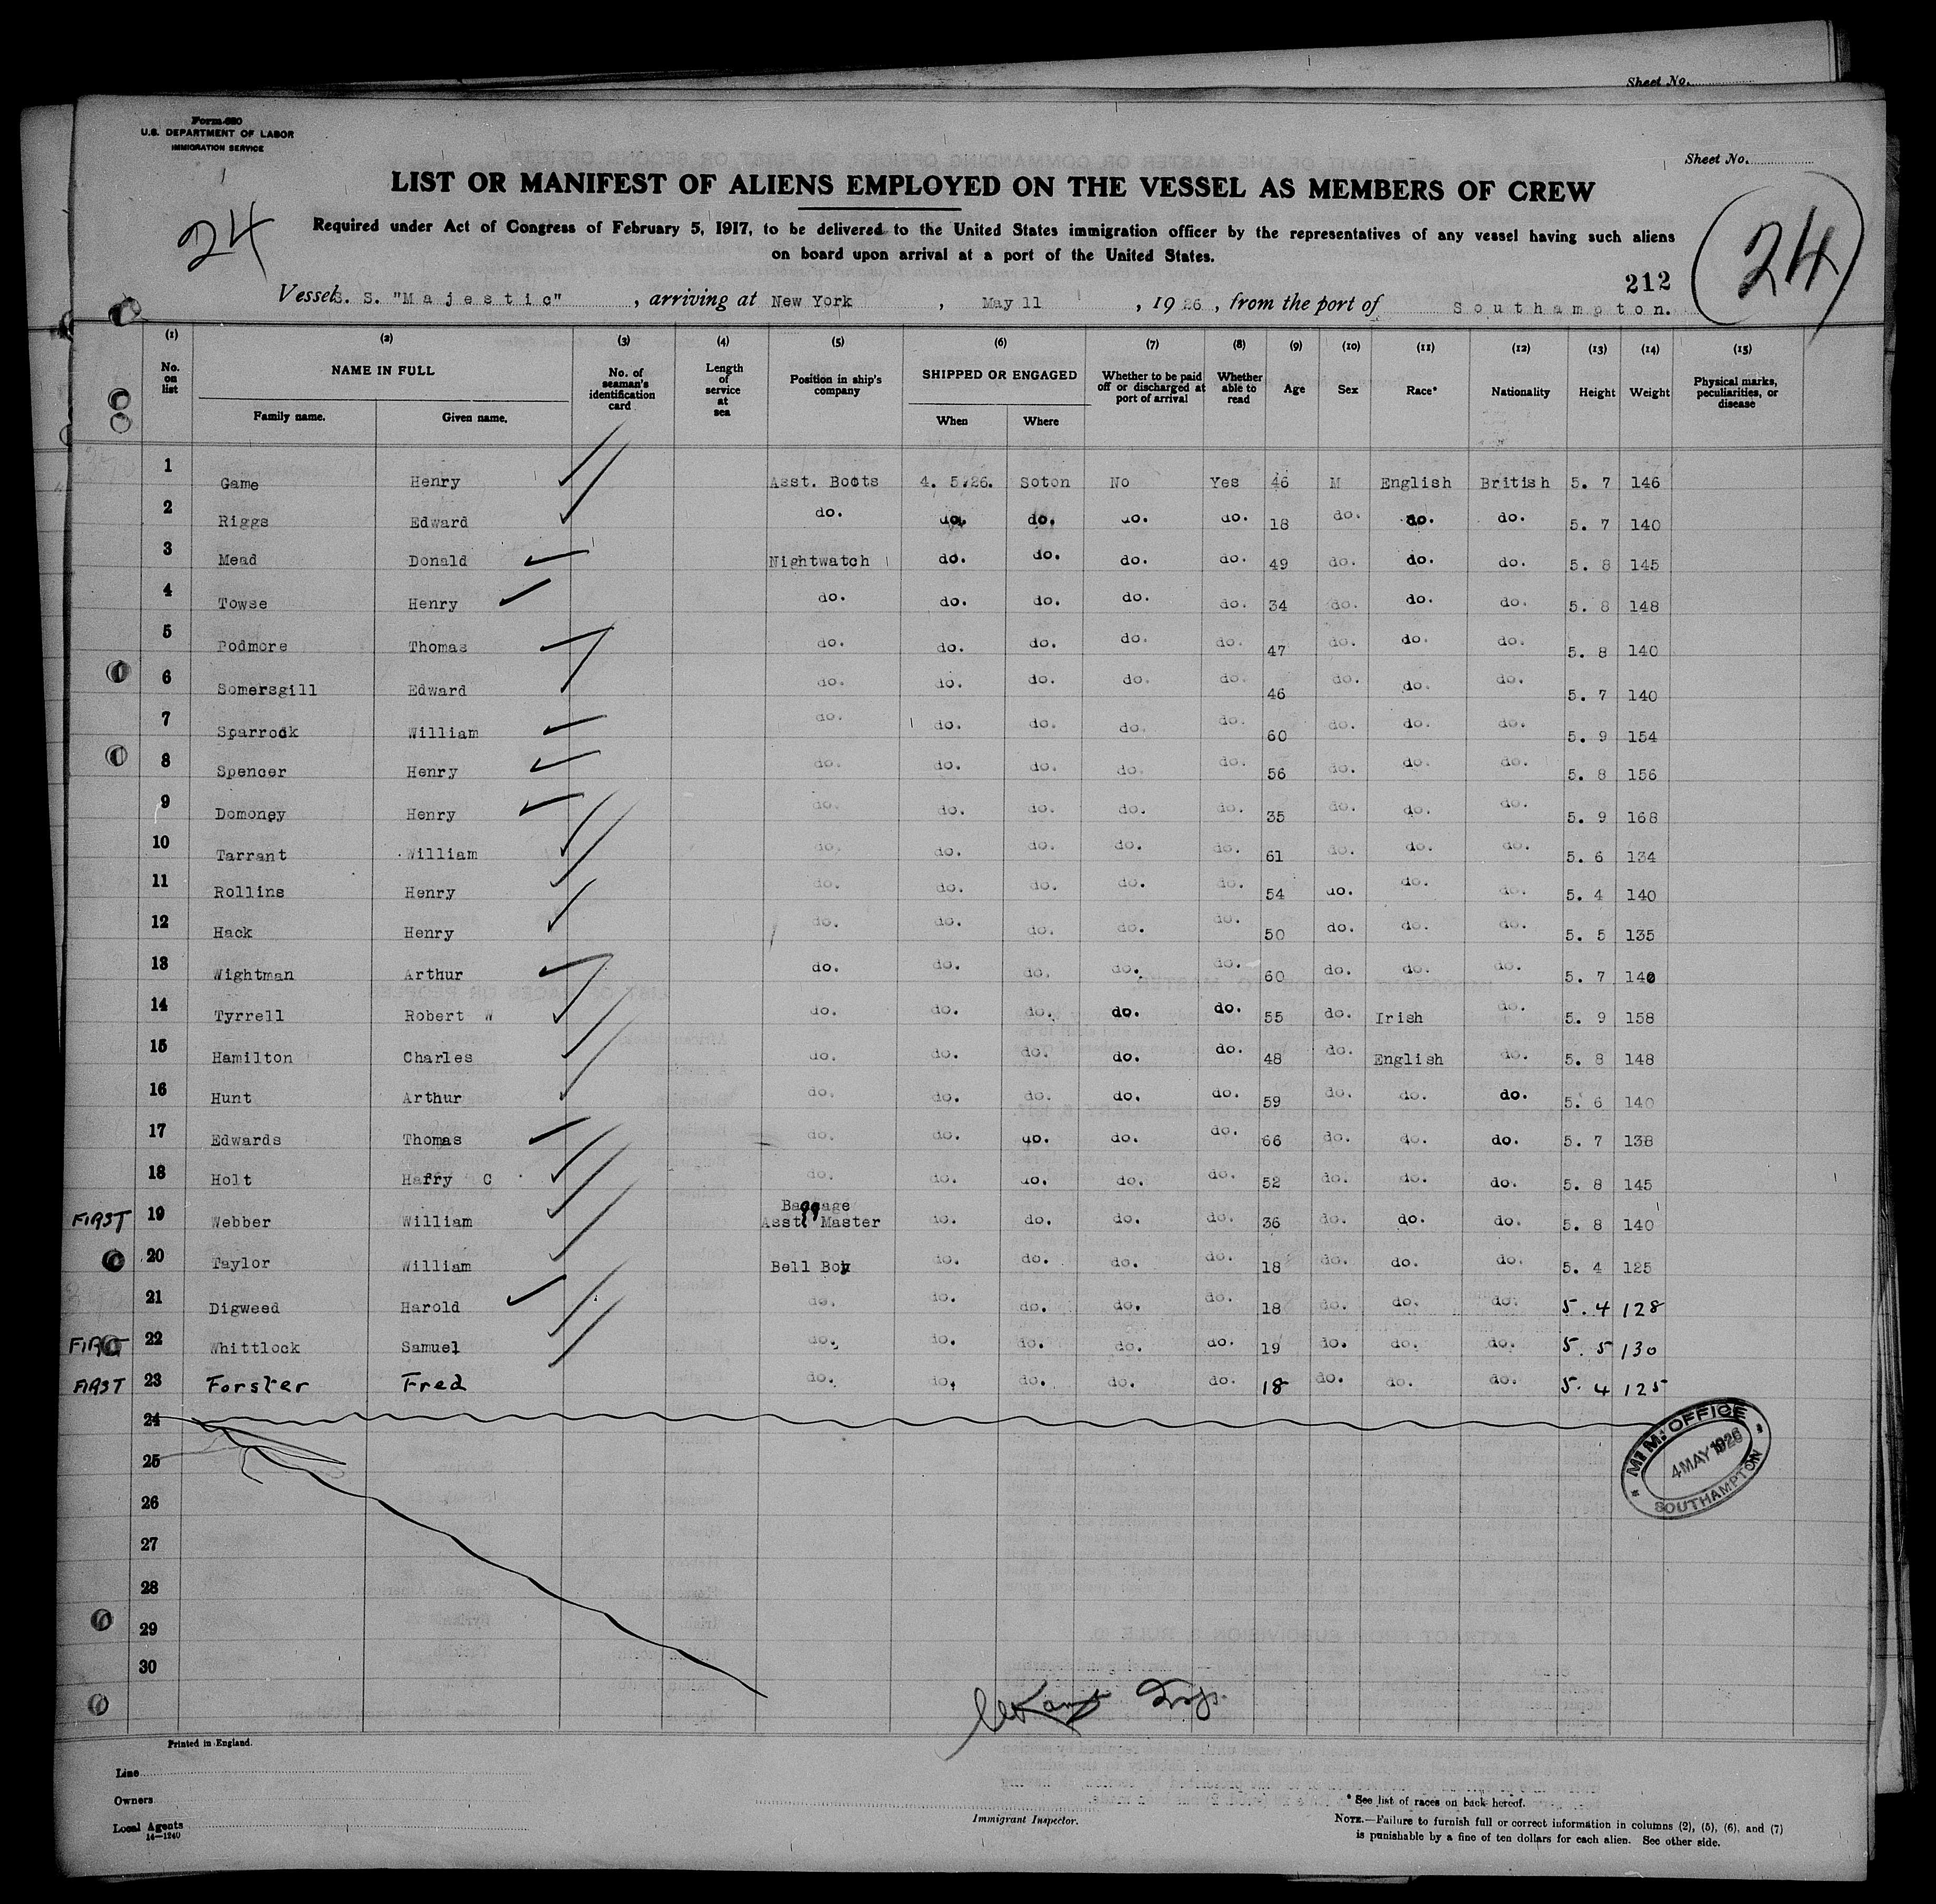 Sheet No.
Form 680
U.S. DEPARTMENT OF LABOR
IMMIGRATION SERVICE
Sheet No.
LIST OR MANIFEST OF ALIENS EMPLOYED ON THE VESSEL AS MEMBERS OF CREW
24
Required under Act of Congress of February 5, 1917, to be delivered to the United States immigration officer by the representatives of any vessel having such aliens
on board upon arrival at a port of the United States.
(24)
212
Vessel S. S. "Majestic", arriving at New York, May 11, 1926, from the port of Southampton.
(1) (2) (3) (4) (5) (6) (7) (8) (9) (10) (11) (12) (13) (14) (15)
No. on list NAME IN FULL No. of seaman's identification card Length of service at sea Position in ship's company SHIPPED OR ENGAGED Whether to be paid off or discharged at port of arrival Whether able to read Age Sex Race* Nationality Height Weight Physical marks, peculiarities, or disease
Family name. Given name. When Where
1 Game Henry Asst. Boots 4. 5.26. Soton No Yes 46 M English British 5. 7 146
2 Riggs Edward do. do. do. do. do. 18 do. do. do. 5. 7 140
3 Mead Donald Nightwatch do. do. do. do. 49 do. do. do. 5. 8 145
4 Towse Henry do. do. do. do. do. 34 do. do. do. 5. 8 148
5 Podmore Thomas do. do. do. do. do. 47 do. do. do. 5. 8 140
6 Somersgill Edward do. do. do. do. do. 46 do. do. do. 5. 7 140
7 Sparrock William do. do. do. do. do. 60 do. do. do. 5. 9 154
8 Spencer Henry do. do. do. do. do. 56 do. do. do. 5. 8 156
9 Domoney Henry do. do. do. do. do. 35 do. do. do. 5. 9 168
10 Tarrant William do. do. do. do. do. 61 do. do. do. 5. 6 134
11 Rollins Henry do. do. do. do. do. 54 do. do. do. 5. 4 140
12 Hack Henry do. do. do. do. do. 50 do. do. do. 5. 5 135
13 Wightman Arthur do. do. do. do. do. 60 do. do. do. 5. 7 140
14 Tyrrell Robert W do. do. do. do. do. 55 do. Irish do. 5. 9 158
15 Hamilton Charles do. do. do. do. do. 48 do. English do. 5. 8 148
16 Hunt Arthur do. do. do. do. do. 59 do. do. do. 5. 6 140
17 Edwards Thomas do. do. do. do. do. 66 do. do. do. 5. 7 138
18 Holt Harry C do. do. do. do. do. 52 do. do. do. 5. 8 145
FIRST 19 Webber William Baggage Asst. Master do. do. do. do. 36 do. do. do. 5. 8 140
20 Taylor William Bell Boy do. do. do. do. 18 do. do. do. 5. 4 125
21 Digweed Harold do. do. do. do. do. 18 do. do. do. 5. 4 128
FIRST 22 Whittlock Samuel do. do. do. do. do. 19 do. do. do. 5. 5 130
FIRST 23 Forster Fred do. do. do. do. do. 18 do. do. do. 5. 4 125
24
25
26
27
28
29
30
M. M. OFFICE
4 MAY 1926
SOUTHAMPTON
Printed in England.
Line
Owners
Local Agents
14—1240
Immigrant Inspector.
* See list of races on back hereof.
NOTE.—Failure to furnish full or correct information in columns (2), (5), (6), and (7)
is punishable by a fine of ten dollars for each alien. See other side.